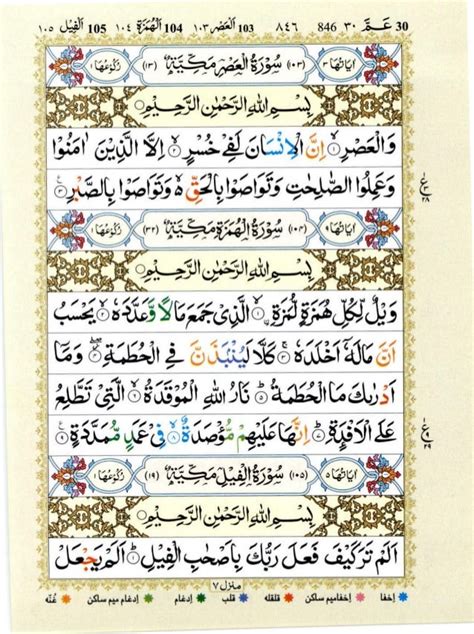 ١٠٥ اَلْفِيل 105 ١٠٤ اَلْهُمَزَة 104 ١٠٣ اَلْعَصْر 103 ٨٤٦ 846 ٣٠ عَـمَّ 30
اٰیَاتُهَا ٣ (١٠٣) سُوْرَةُ الْعَصْرِ مَكِّيَّةٌ (١٣) رُكُوْعُهَا ١
بِسْمِ اللّٰهِ الرَّحْمٰنِ الرَّحِيْمِ
وَالْعَصْرِ ۙ‏ ١ اِنَّ الْاِنْسَانَ لَفِيْ خُسْرٍ ۙ‏ ٢ اِلَّا الَّذِيْنَ اٰمَنُوْا
وَعَمِلُوا الصّٰلِحٰتِ وَتَوَاصَوْا بِالْحَقِّ ۙ۬ وَتَوَاصَوْا بِالصَّبْرِ ٣
ع ٢٨
اٰیَاتُهَا ٩ (١٠٤) سُوْرَةُ الْهُمَزَةِ مَكِّيَّةٌ (٣٢) رُكُوْعُهَا ١
بِسْمِ اللّٰهِ الرَّحْمٰنِ الرَّحِيْمِ
وَيْلٌ لِّكُلِّ هُمَزَةٍ لُّمَزَةِ ۙ‏ ١ الَّذِيْ جَمَعَ مَالًا وَّعَدَّدَهٗ ۙ‏ ٢ يَحْسَبُ
اَنَّ مَالَهٗٓ اَخْلَدَهٗ ۚ‏ ٣ كَلَّا لَيُنْۢبَذَنَّ فِي الْحُطَمَةِ ۖ‏ ٤ وَمَآ
اَدْرٰىكَ مَا الْحُطَمَةُ ؕ‏ ٥ نَارُ اللّٰهِ الْمُوْقَدَةُ ۙ‏ ٦ الَّتِيْ تَطَّلِعُ
عَلَى الْاَفْـِٕدَةِ ؕ‏ ٧ اِنَّهَا عَلَيْهِمْ مُّؤْصَدَةٌ ۙ‏ ٨ فِيْ عَمَدٍ مُّمَدَّدَةٍ ٩
ع ٢٩
اٰیَاتُهَا ٥ (١٠٥) سُوْرَةُ الْفِيْلِ مَكِّيَّةٌ (١٩) رُكُوْعُهَا ١
بِسْمِ اللّٰهِ الرَّحْمٰنِ الرَّحِيْمِ
اَلَمْ تَرَ كَيْفَ فَعَلَ رَبُّكَ بِاَصْحٰبِ الْفِيْلِ ؕ‏ ١ اَلَمْ يَجْعَلْ
منزل ٧
اخفا اخفامیم ساکن قلقلہ قلب ادغام ادغام میم ساکن غنّہ